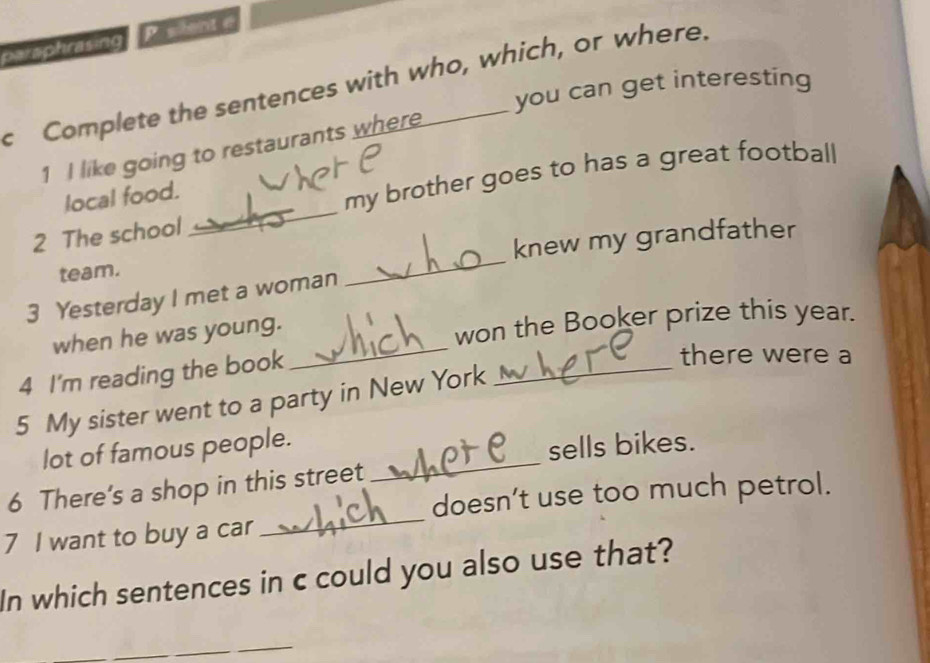 paraphrasing P silent e
c Complete the sentences with who, which, or where.
1 I like going to restaurants where you can get interesting
local food.
where
2 The school who my brother goes to has a great football
team.
3 Yesterday I met a woman who knew my grandfather
when he was young.
4 I'm reading the book which won the Booker prize this year.
5 My sister went to a party in New York where there were a
lot of famous people.
6 There's a shop in this street where sells bikes.
7 I want to buy a car which doesn't use too much petrol.
In which sentences in c could you also use that?